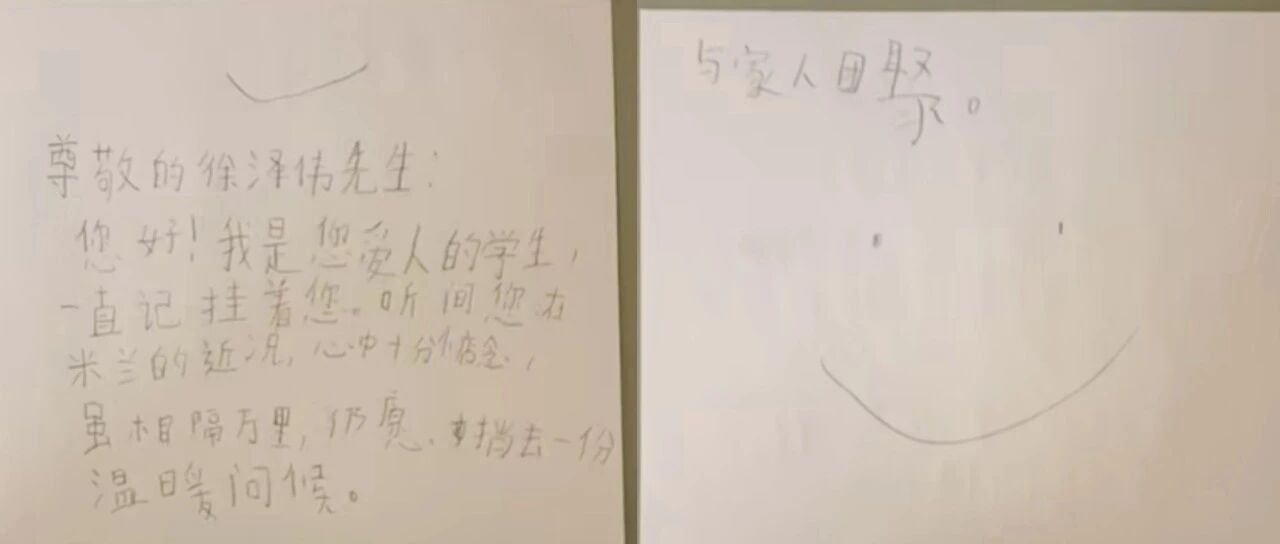 尊敬的徐泽伟先生：
您好！我是您爱人的学生，
一直记挂着您。听间您在
米兰的近况，心中十分惦念，
虽相隔万里，仍愿、捎去一份
温暖问候。
与家人团聚。